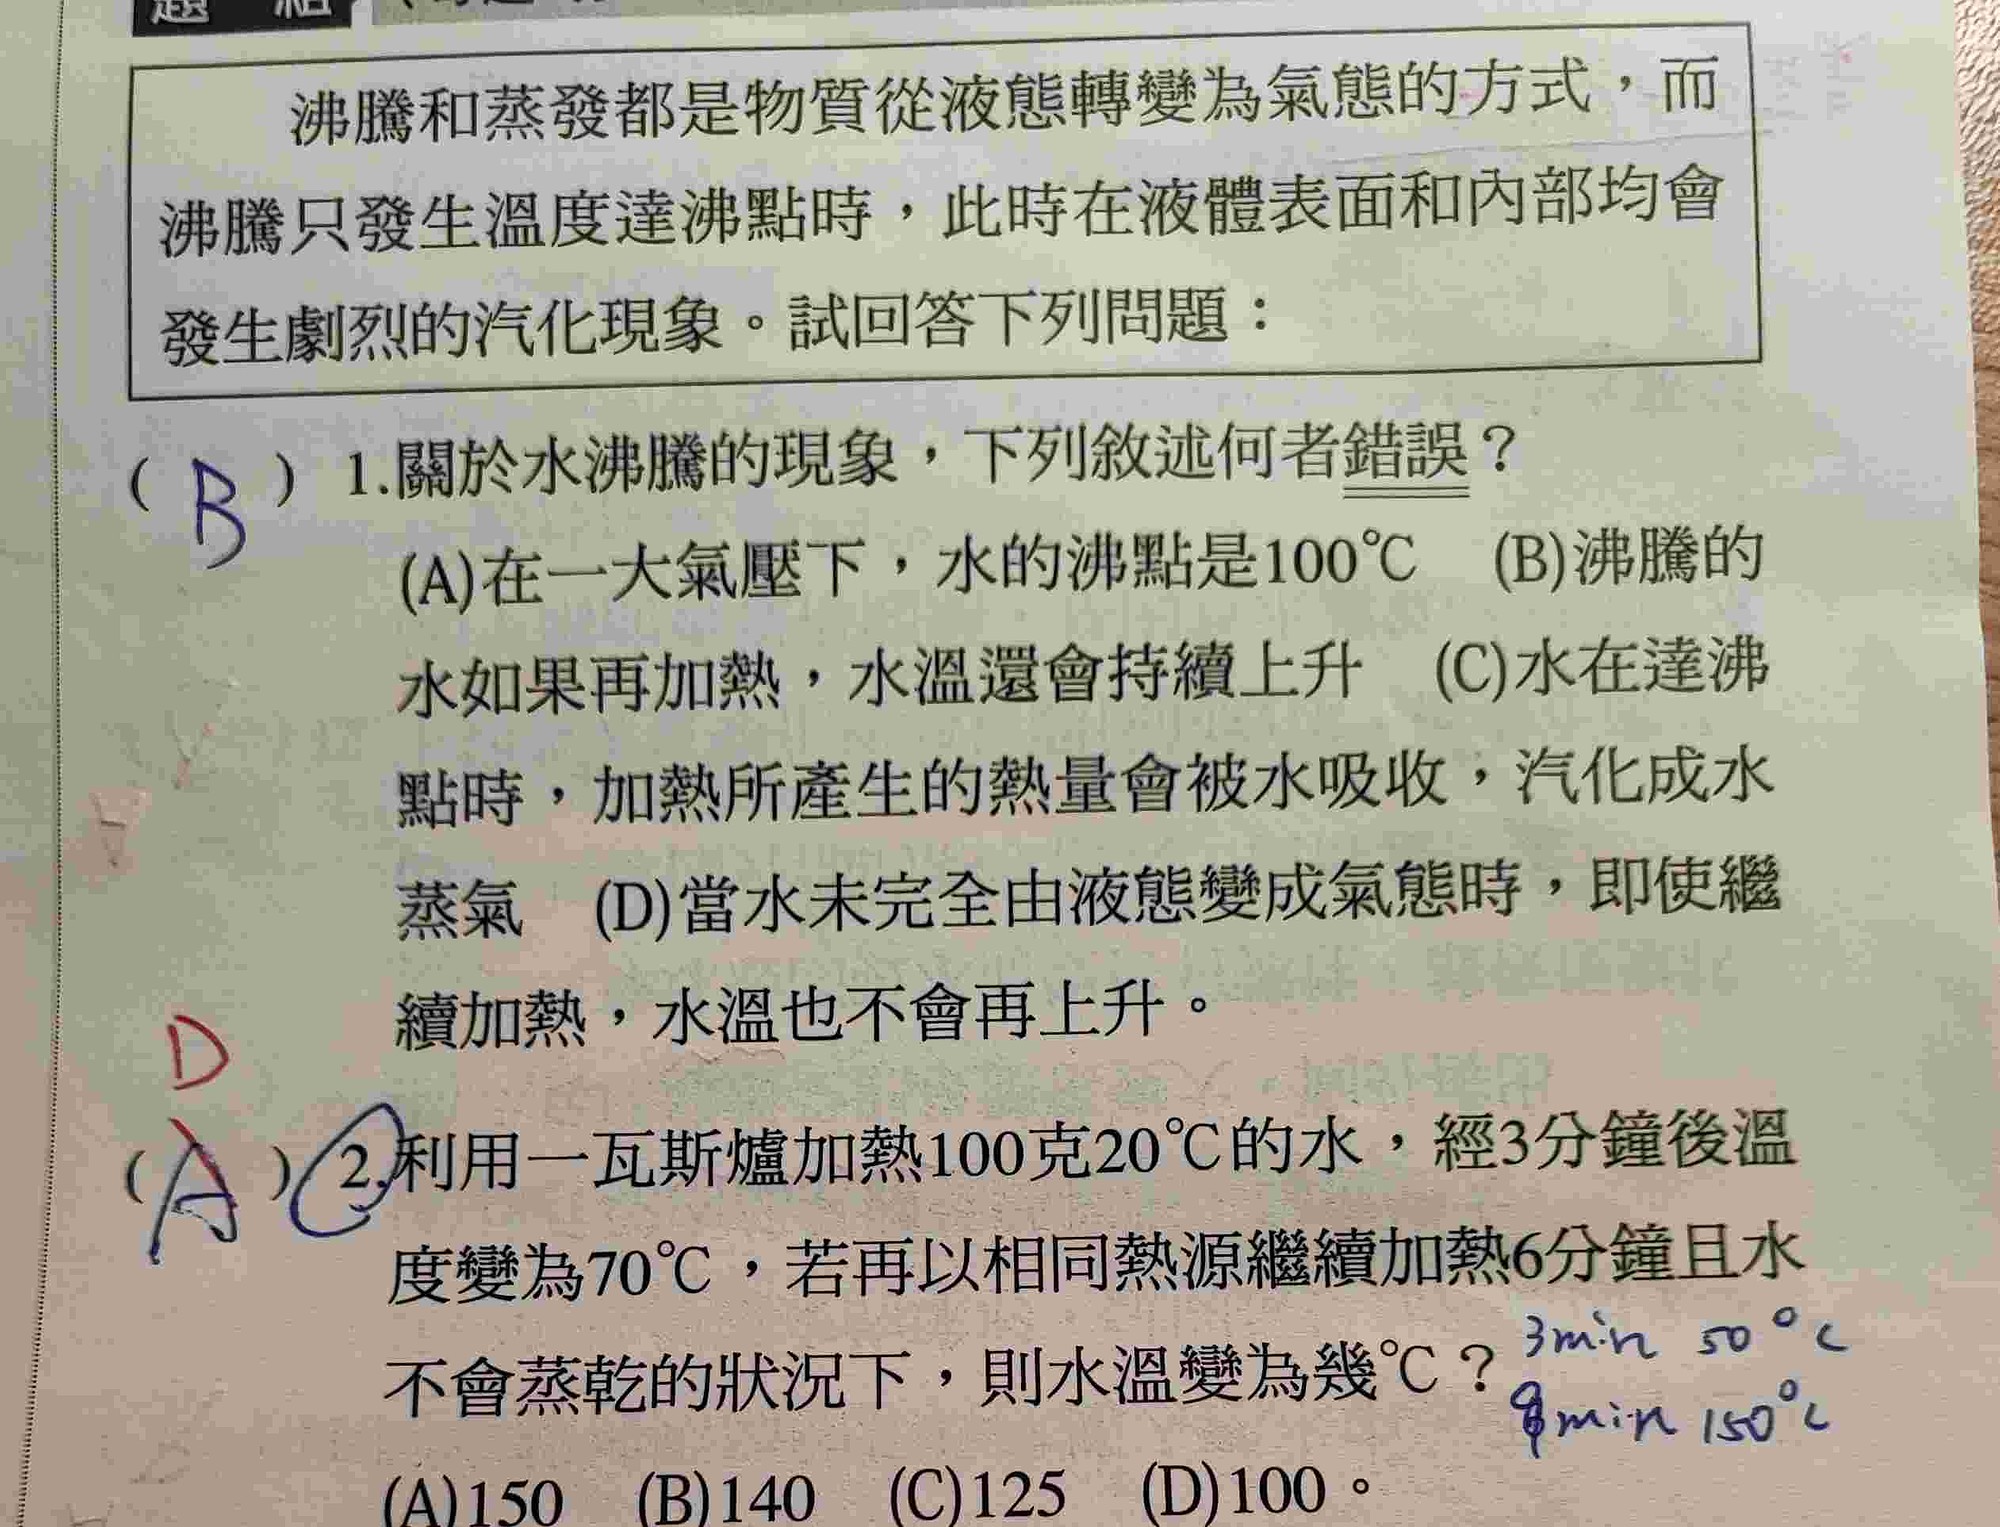 題 組
沸騰和蒸發都是物質從液態轉變為氣態的方式，而
沸騰只發生溫度達沸點時，此時在液體表面和內部均會
發生劇烈的汽化現象。試回答下列問題：
( B ) 1.關於水沸騰的現象，下列敘述何者錯誤？
(A)在一大氣壓下，水的沸點是100℃ (B)沸騰的
水如果再加熱，水溫還會持續上升 (C)水在達沸
點時，加熱所產生的熱量會被水吸收，汽化成水
蒸氣 (D)當水未完全由液態變成氣態時，即使繼
續加熱，水溫也不會再上升。
D
( A ) 2.利用一瓦斯爐加熱100克20℃的水，經3分鐘後溫
度變為70℃，若再以相同熱源繼續加熱6分鐘且水
不會蒸乾的狀況下，則水溫變為幾℃？
3min 50°C
9min 150°C
(A)150 (B)140 (C)125 (D)100。